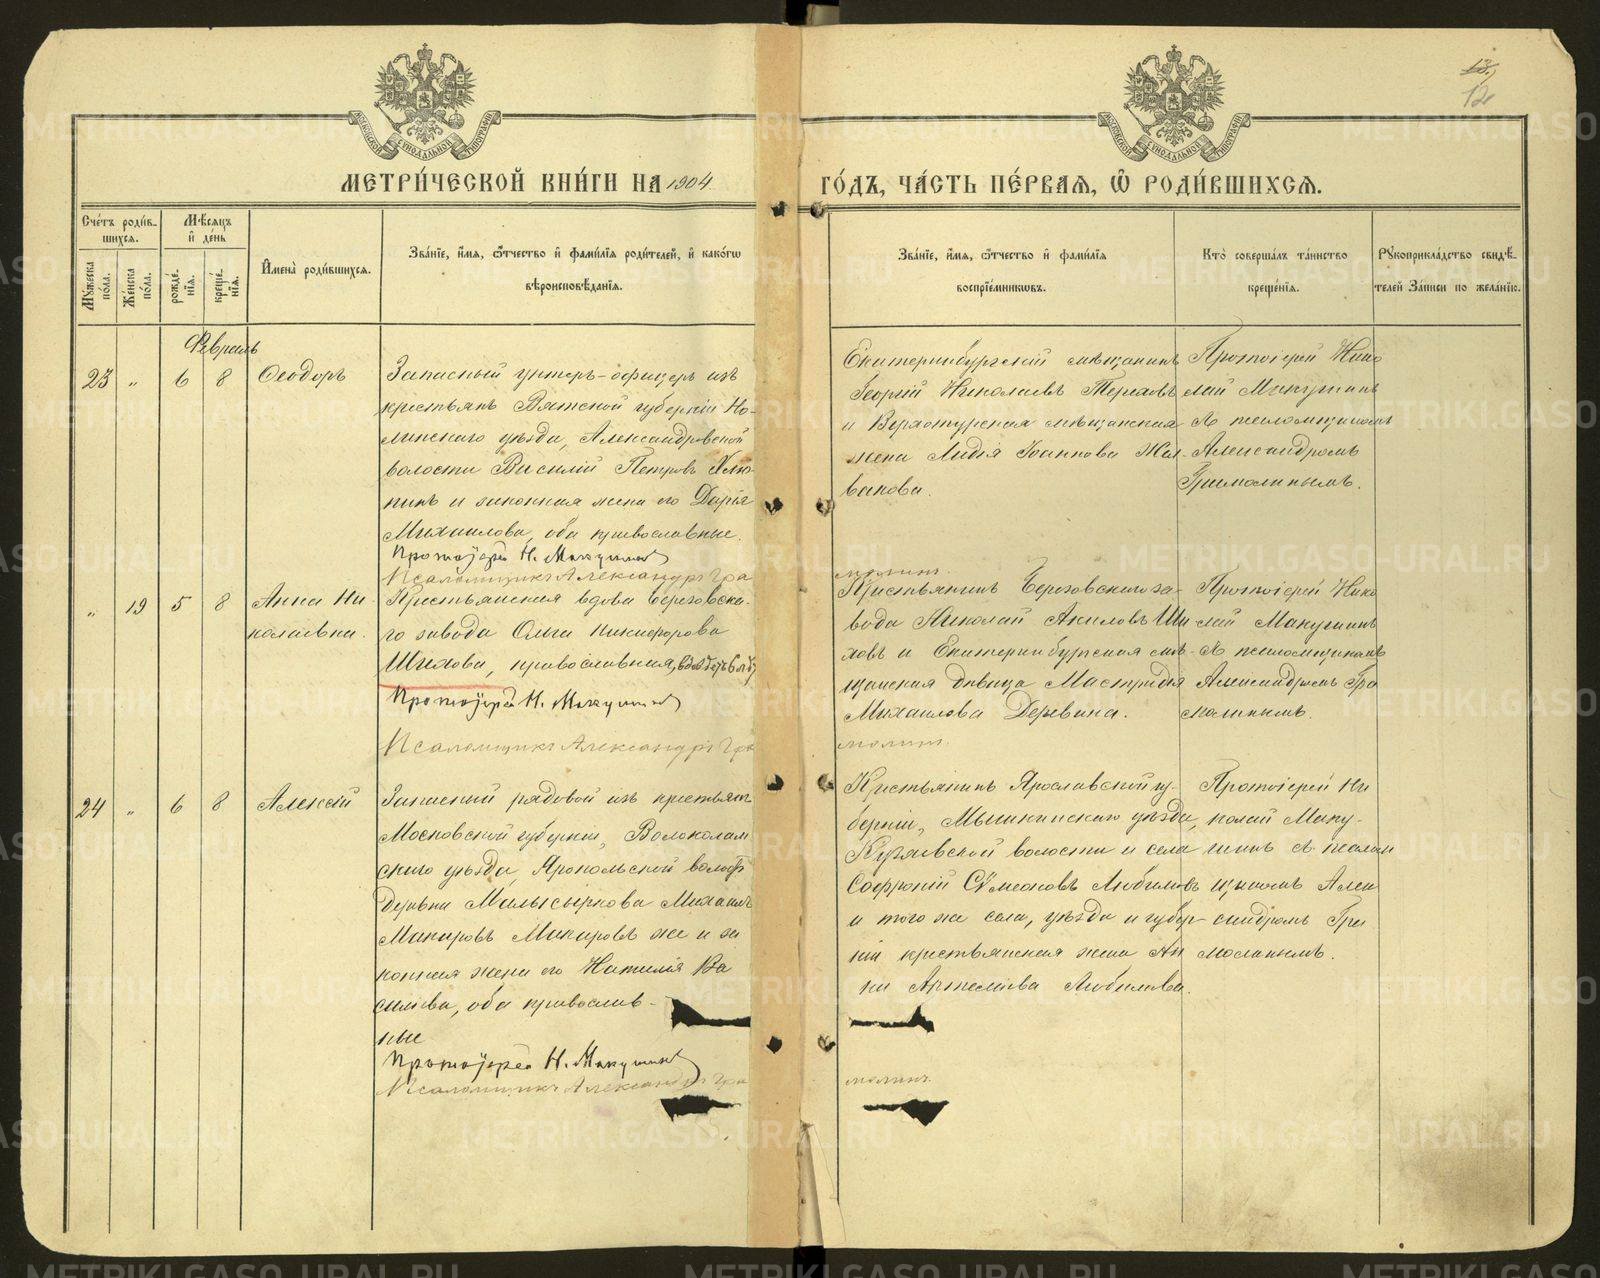 13,
12
МОСКОВСКОЙ СѴНОДАЛЬНОЙ ТИПОГРАФІИ
МОСКОВСКОЙ СѴНОДАЛЬНОЙ ТИПОГРАФІИ
МЕТРИ́ЧЕСКОЙ КНИ́ГИ НА 1904
ГО́ДЪ, ЧА́СТЬ ПЕ́РВАѦ, Ѽ РОДИ́ВШИХСѦ.
Сче́тъ роди́в-
шихся.
Му́жеска по́ла.
Же́нска по́ла.
Мѣ́сяцъ
и҆ де́нь
рожде́нїя.
креще́нїя.
И҆мена̀ роди́вшихся.
Зва́нїе, и҆́мя, ѻ҆́тчество и҆ фами́лїя роди́телей, и҆ како́гѡ
вѣроисповѣ́данїя.
Зва́нїе, и҆́мя, ѻ҆́тчество и҆ фами́лїя
воспрїе́мникѡвъ.
Кто̀ соверша́лъ та́инство
креще́нїя.
Рꙋкоприкла́дство свидѣ́-
телей за́писи по жела́нїю.
Февраль
23 „ 6 8 Ѳеодоръ
Запасный унтеръ-офицеръ изъ
крестьянъ Вятской губерніи Но-
линскаго уѣзда, Александровской
волости Василій Петровъ Клю-
кинъ и законная жена его Дарія
Михаилова, оба православные.
Протоіерей Н. Макушинъ
Псаломщикъ Александръ Гра
молинъ.
Екатеринбургскій мѣщанинъ
Георгій Николаевъ Тереховъ
и Верхотурская мѣщанская
жена Лидія Іоаннова Жел-
вакова.
Протоіерей Нико
лай Макушинъ
съ псаломщикомъ
Александромъ
Грамолинымъ.
„ 19 5 8 Анна Ни-
колаевна.
Крестьянская вдова Березовска-
го завода Ольга Никифорова
Шихова, православная,
Протоіерей Н. Макушинъ
Псаломщикъ Александръ Гра
молинъ.
Крестьянинъ Березовскаго за-
вода Николай Акиловъ Ши-
ховъ и Екатеринбургская мѣ-
щанская дѣвица Мастридія
Михаилова Дерявина.
Протоіерей Нико
лай Макушинъ
съ псаломщикомъ
Александромъ Гра
молинымъ.
24 „ 6 8 Алексій
Запасный рядовой изъ крестьянъ
Московской губерніи, Волоколам
скаго уѣзда, Яропольской волости
деревни Малысыркова Михаилъ
Макаровъ Макаровъ же и за
конная жена его Наталія Ва
сильева, оба православ-
ные
Протоіерей Н. Макушинъ
Псаломщикъ Александръ Гра
молинъ.
Крестьянинъ Ярославской гу-
берніи, Мышкинскаго уѣзда,
волости и села
Софроній Сѵмеоновъ Любимовъ
и того же села, уѣзда и губер-
ніи крестьянская жена Ан
на Артемьева Любимова.
Протоіерей Ни
колай Маку-
шинъ съ псалом
щикомъ Алек
сандромъ Гра
молинымъ.
METRIKI.GASO-URAL.RU